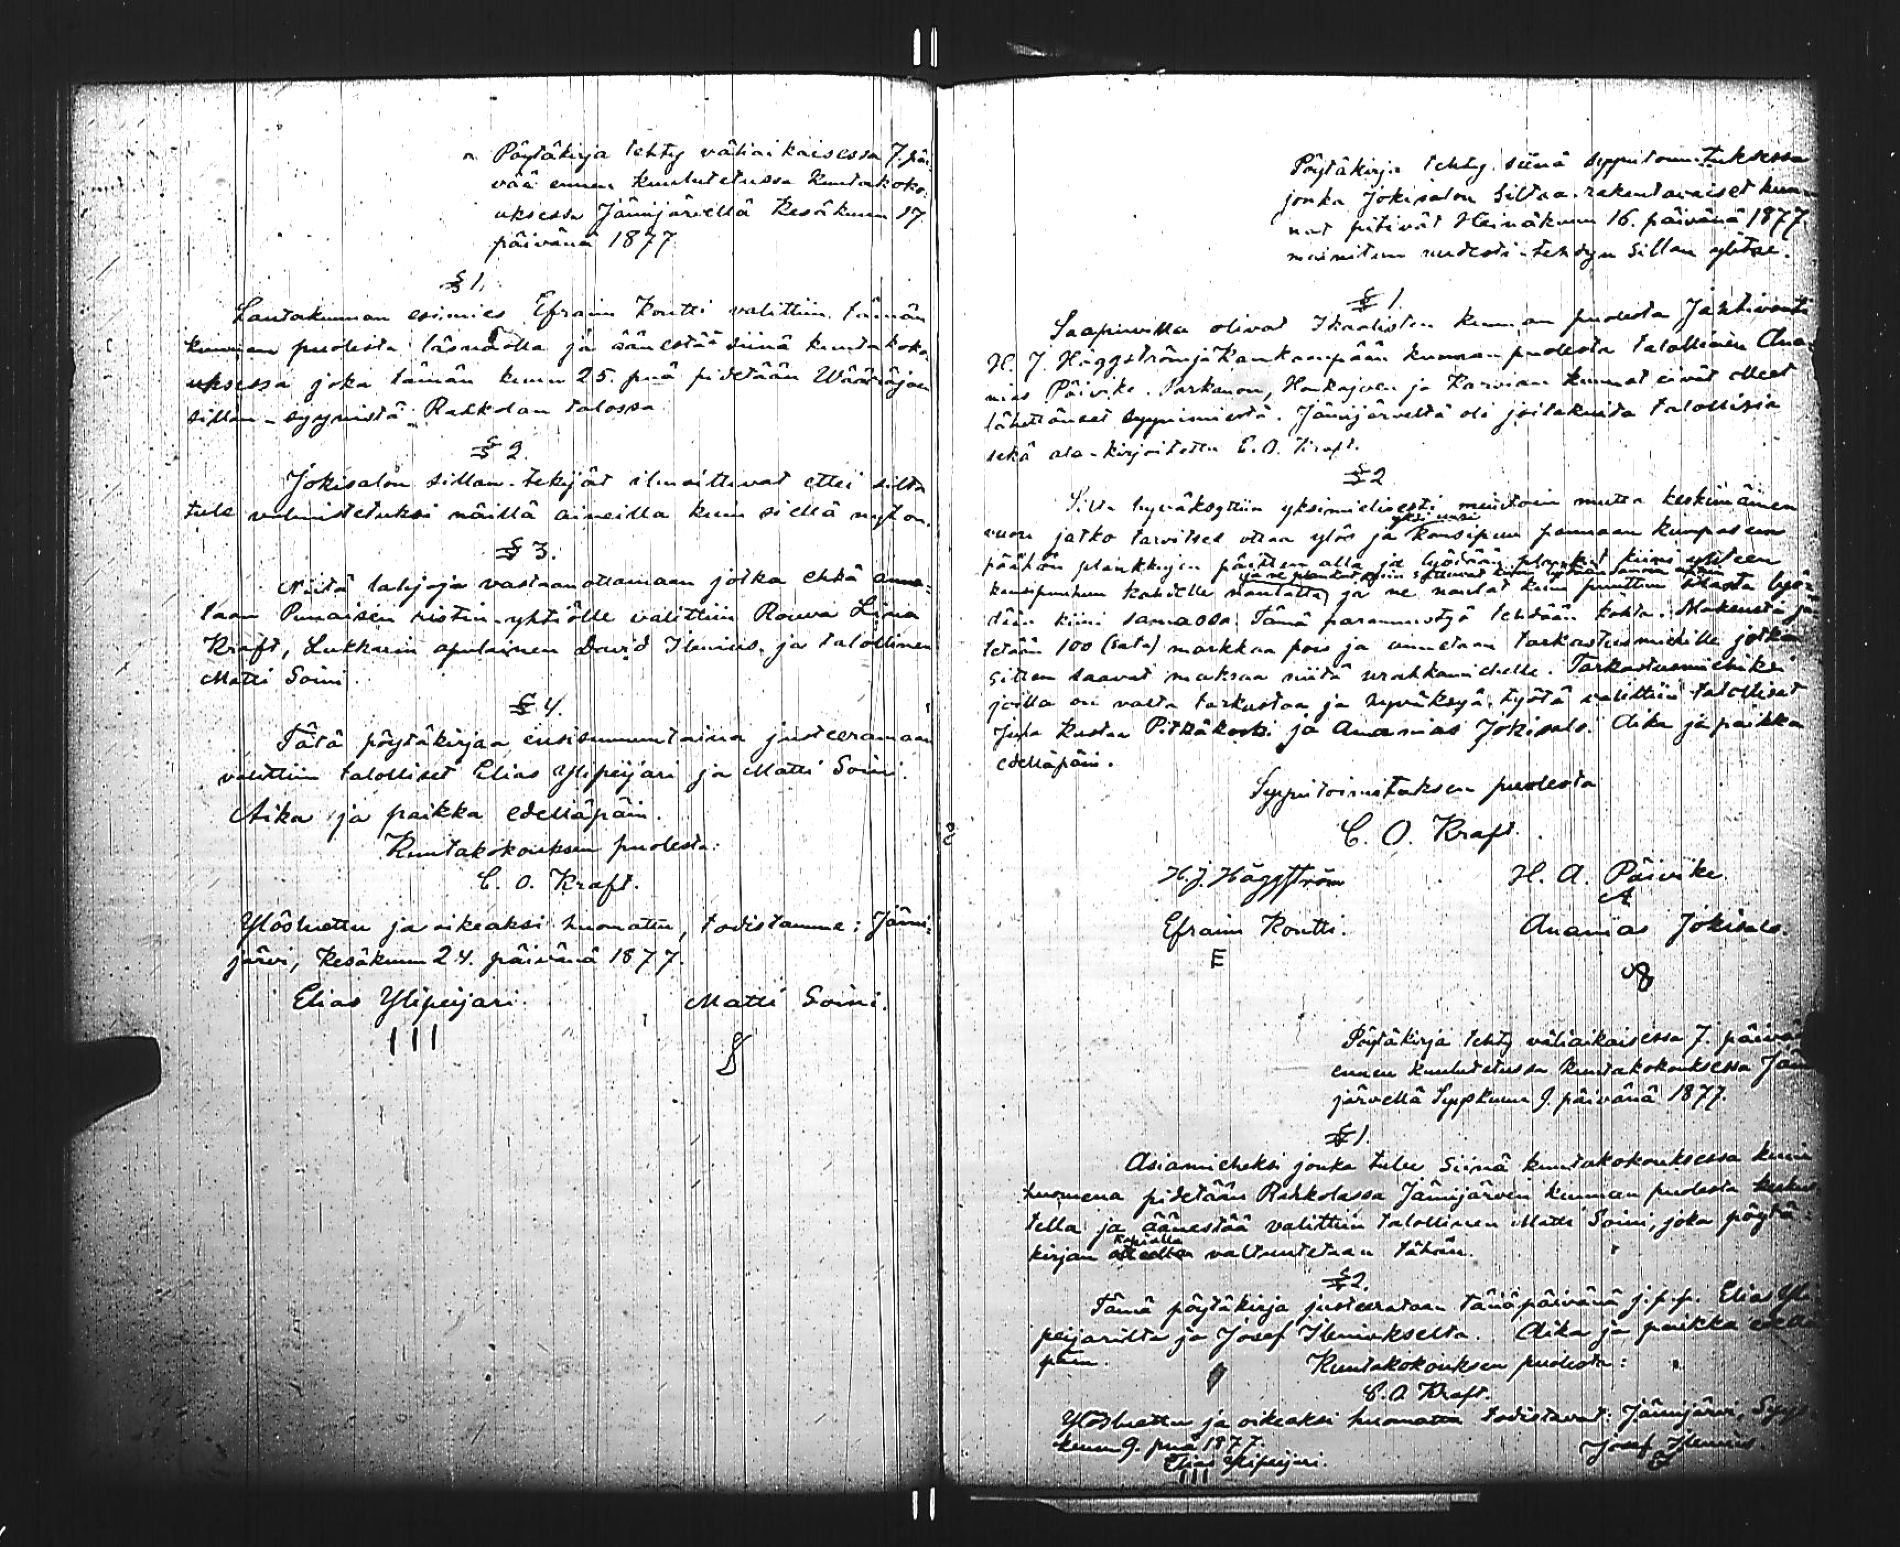 Pöytäkirja tehty väliaikaisessa 7. päi-
vää ennen kuulutetussa kuntakoko-
uksessa Jämijärvellä Kesäkuun 17.
päivänä 1877.
§ 1.
Lautakunnan esimies Efraim Kontti valittiin tämän
kunnan puolesta läsnäolla ja äänestää siinä kuntakoko-
uksessa joka tämän kuun 25. pnä pidetään
sillan-syynistä Rahkolan talossa.
§ 2.
Jokisalon sillan-tekijät ilmoittivat ettei silta
tule valmistetuksi näillä aineilla kuin siellä nyt on.
§ 3.
Niitä lahjoja vastaanottamaan jotka ehkä anne-
taan Punaisen ristin-yhtiölle valittiin Rouva Lina
Kraft, Lukkarin apulainen David Ilenius, ja talollinen
Matti Soini.
§ 4.
Tätä pöytäkirjaa ensisunnuntaina justeeramaan
valittiin talolliset Elias Ylipeijari ja Matti Soini.
Aika ja paikka edelläpäin.
Kuntakokouksen puolesta:
C. O. Kraft.
Ylösluettu ja oikeaksi huomattu, todistamme: Jämi-
järvi, Kesäkuun 24. päivänä 1877.
Elias Ylipeijari. Matti Soini.
III
Pöytäkirja tehty siinä syynitoimituksessa
jonka Jokisalon Siltaa rakentavaiset kun-
nat pitivät Heinäkuun 16. päivänä 1877
mainitun uudesti-tehdyn Sillan ylitse.
§ 1.
Saapuvilla olivat Ikaalisten kunnan puolesta Jahtivouti
H. J. Häggström ja Kankaanpään kunnan puolesta talollinen Ana-
nias Päivike. Parkanon, Honkajoen ja Karvian kunnat eivät olleet
lähettäneet syynimiestä. Jämijärveltä oli joitakuita talollisia
sekä ala-kirjoitettu C. O. Kraft.
§ 2
Silta hyväksyttiin yksimielisesti muutoin mutta keskimäinen
vuori jatko tarvitsee ottaa ylös ja yksi uusi konsipuu pannaan kumpaseen
päähän plankkujen päitten alla ja lyödään plankut kiini yhteen
konsipuuhun kahdella naulatta, ja ne naulat kuin puuttuu sillasta lyö-
dään kiini samassa. Tämä parannustyö tehdään kohta. Maksusta jä-
tetään 100 (sata) markkaa pois ja annetaan tarkastusmiehille jotka
sitten saavat maksaa niitä urakkamiehelle. Tarkastusmiehiksi
joilla on valta tarkastaa ja hyväksyä työtä valittiin talolliset
Juha Kustaa Pitkäkoski ja Ananias Jokisalo. Aika ja paikka
edelläpäin.
Syynitoimituksen puolesta
C. O. Kraft.
H. J. Häggström H. A. Päivike.
A
Efraim Kontti. Ananias Jokisalo.
E
Pöytäkirja tehty väliaikaisessa 7. päivää
ennen kuulutetussa kuntakokouksessa Jämi-
järvellä Syyskuun 9. päivänä 1877.
§ 1.
Asiamieheksi jonka tulee siinä kuntakokouksessa kuin
huomena pidetään Rahkolassa Jämijärven kunnan puolesta keskus-
tella ja äänestää valittiin talollinen Matti Soini, joka pöytä-
kirjan kopialla valtuutetaan tähän.
§ 2.
Tämä pöytäkirja justeerataan tänäpäivänä j.p.p. Elias Yli-
peijarilta ja Josef Ileniukselta. Aika ja paikka edellä-
päin.
Kuntakokouksen puolesta:
C. O. Kraft.
Ylösluettu ja oikeaksi huomattu todistavat: Jämijärvi, Syys-
kuun 9. pnä 1877.
Elias Ylipeijari. Josef Ilenius.
III